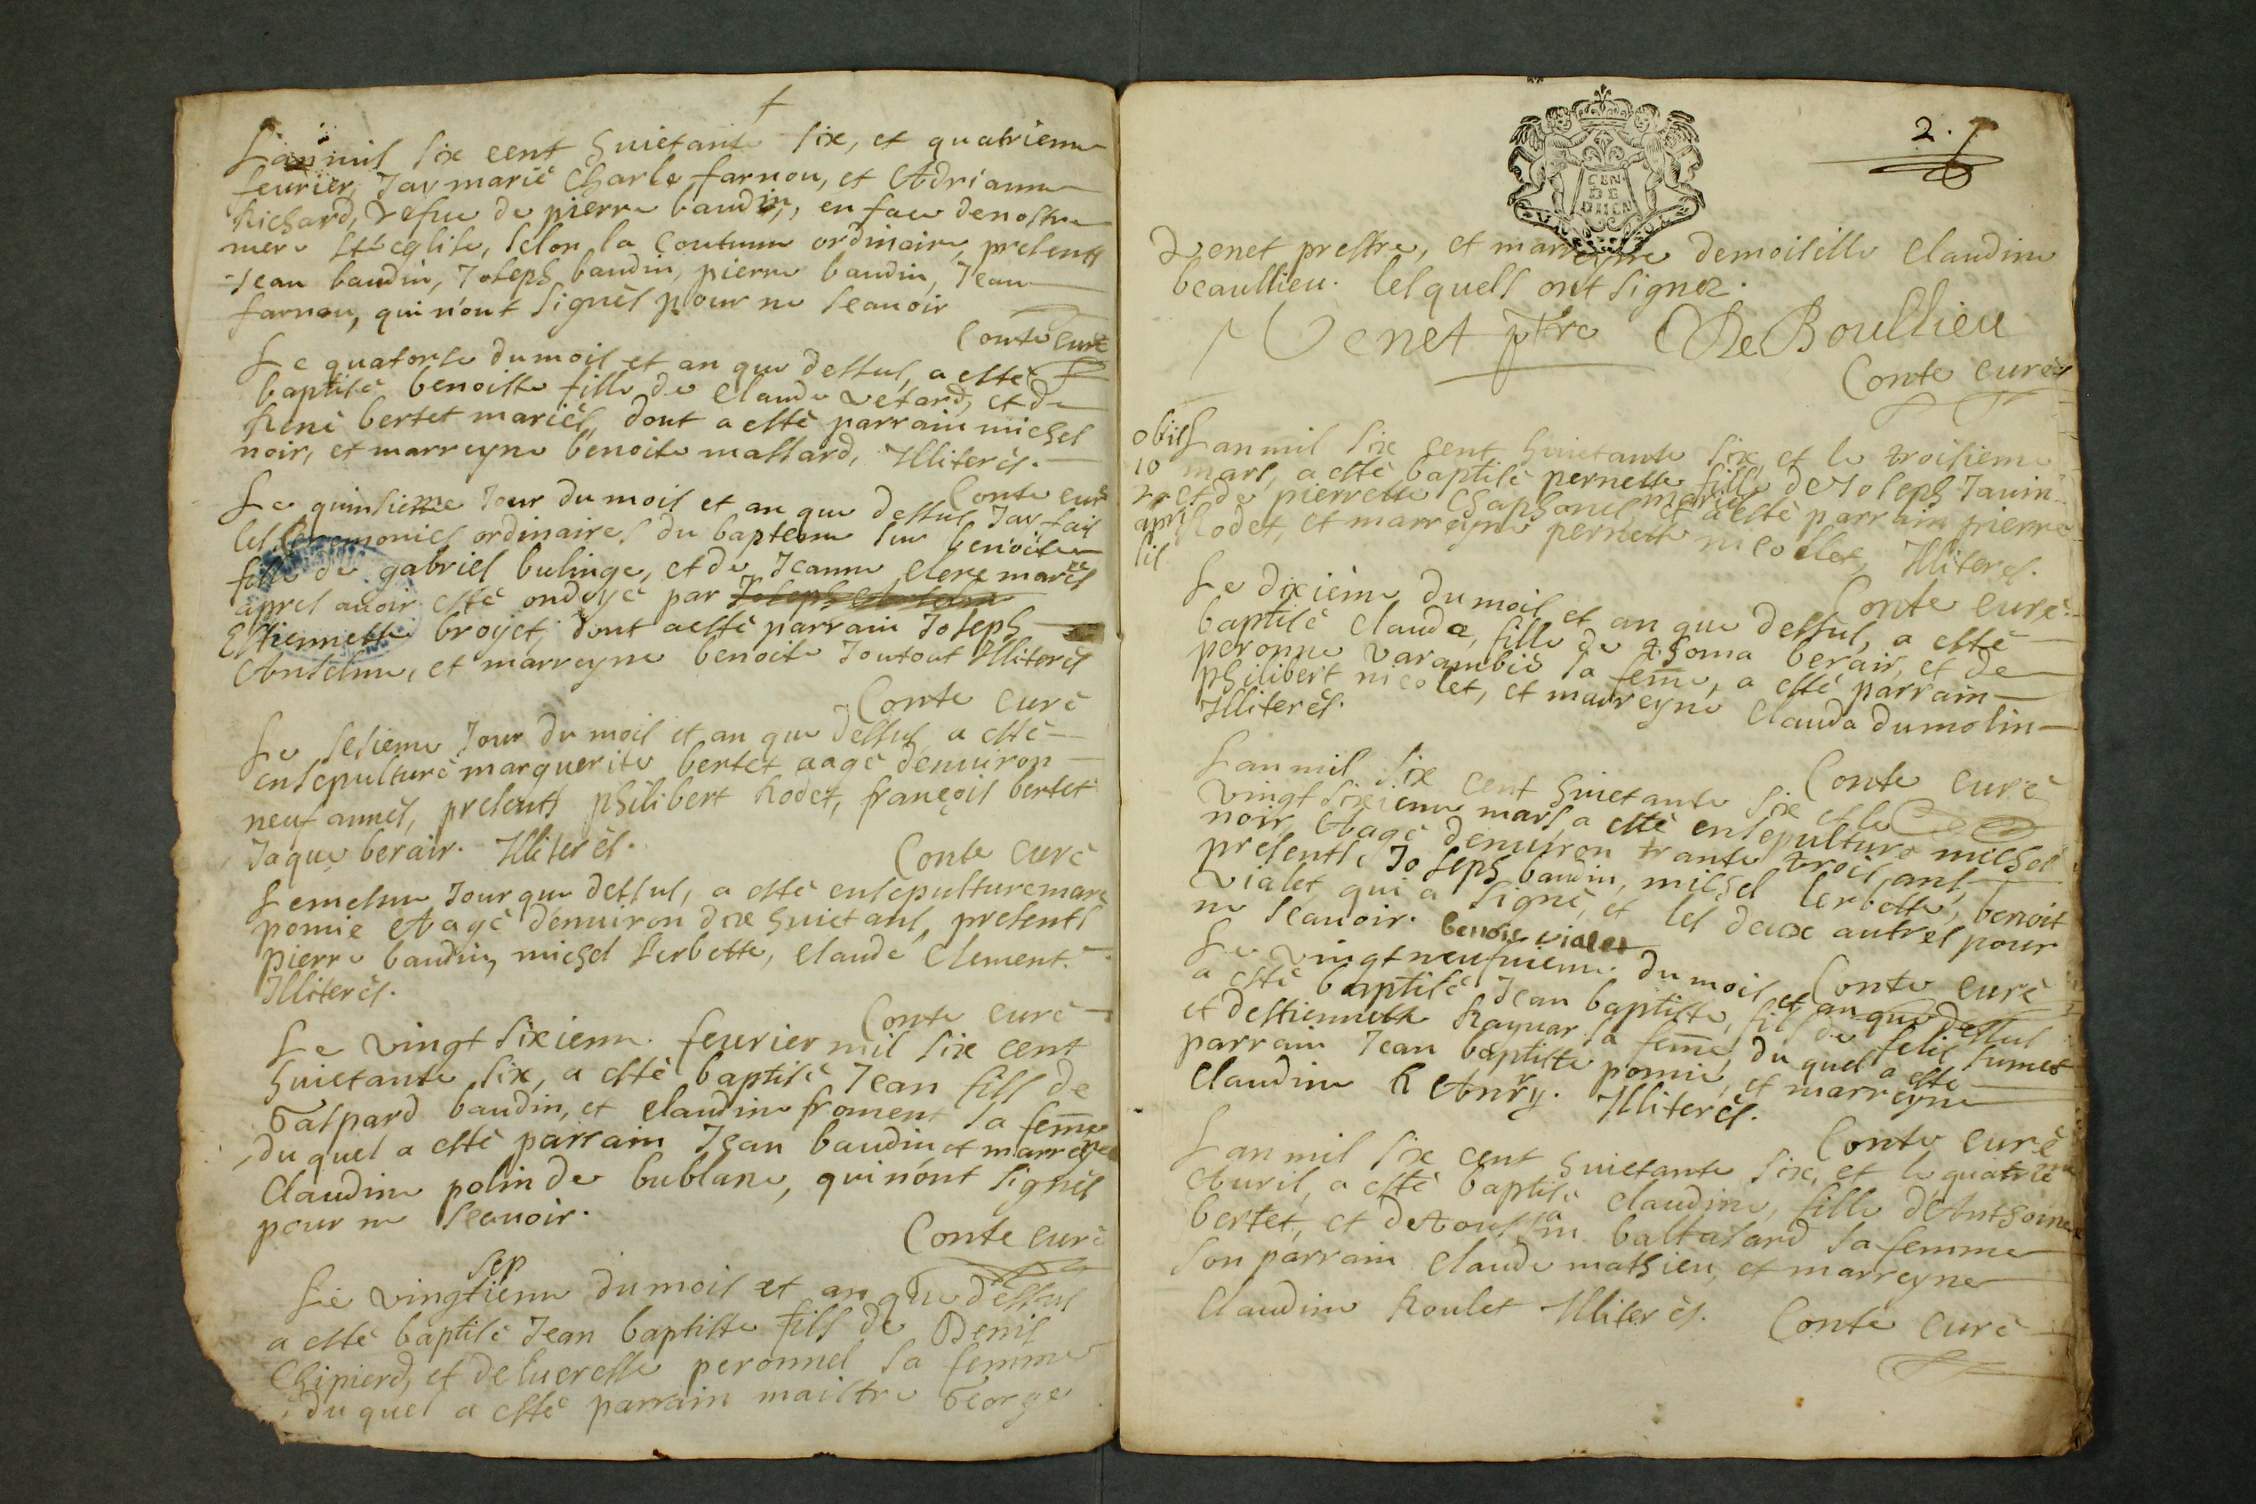 Lan mil six cent huictante six, et quatrieme
feurier, Jay marié Charle farnou, et Adrianne
Richard, vefue de pierre baudin, en face de nostre
mere ste eglise, selon la Coutume ordinaire, presents
Jean baudin, Joseph baudin, pierre baudin, Jean
farnou, qui n'ont signés pour ne scauoir
Conte curé
Le quatorse du mois et an que dessus, a esté
baptisé benoitte fille de Claude vetard, et de
Rene bertet mariés, dont a esté parrain michel
noir, et marreyne benoite massard, Illiterés.
Conte curé
Le quinsieme Jour du mois et an que dessus Jay fait
les Ceremonies ordinaires du bapteme sur benoite
fille de gabriel bulinge, et de Jeanne clere mariés
apres auoir esté ondoyé par
Estiennette broyet, dont a esté parrain Joseph
Anselme, et marreyne benoite Joutout Illiterés
Conte curé
Le sesieme Jour du mois et an que dessus a esté
ensepulturé marguerite bertet aagé denuiron
neuf années, presents philibert Rodet, françois bertet
Jaque berair. Illiterés.
Conte curé
Le mesme Jour que dessus, a esté ensepulturé marc
pomie Aagé denuiron dix huict ans, presents
pierre baudin, michel Serbette, Claude Clement.
Illiterés.
Conte curé
Le vingt sixieme feurier mil six cent
huictante six, a esté baptisé Jean fils de
Gaspard baudin, et claudine froment sa femme
du quel a esté parrain Jean baudin et marreyne
Claudine polin de bublane, qui n'ont signés
pour ne scauoir.
Conte curé
sep
Le vingttieme du mois et an que dessus
a esté baptisé Jean baptiste fils de Denis
Chipierd, et de lucresse peronnel sa femme
du quel a esté parrain maistre George
2.
CEN
DE
DHEN
venet prestre, et marreyne demoiselle Claudine
beaullieu. lesquels ont signez.
Venet ptre De Boullieu
Conte curé
obiit
10
apri
lis
Lan mil six cent huictante six, et le troisieme
mars, a esté baptisé pernette fille de Joseph Janin
et de pierrette Chaphonel mariés a esté parrain pierre
Rodet, et marreyne pernette nicollet, Illiteres.
Conte curé
Le dixieme du mois et an que dessus, a esté
baptisé Clauda, fille de thoma berair, et de
peronne varambié sa femme, a esté parrain
philibert nicolet, et marreyne Clauda dumolin
Illiterés.
Conte curé
Lan mil six cent huictante six et le
vingt sixieme mars, a esté ensepulturé michel
noir Aagé denuiron trante trois ans,
presents Joseph baudin, michel Serbette, benoit
vialet qui a signé, et les deux autres pour
ne scauoir. benoit vialet
Conte curé
Le vingt neufuieme du mois et an que dessus
a esté baptisé Jean baptiste, fils de felis fumet
et destiennette Raynar sa femme, du quel a esté
parrain Jean baptiste pomie, et marreyne
Claudine R Anry. Illiterés.
Conte curé
Lan mil six cent huictante six, et le quatrieme
Auril, a esté baptisé claudine, fille dAnthoine
bertet, et de toussain baltasard sa femme
son parrain Claude mathieu, et marreyne
Claudine Roulet Illiterés.
Conte curé